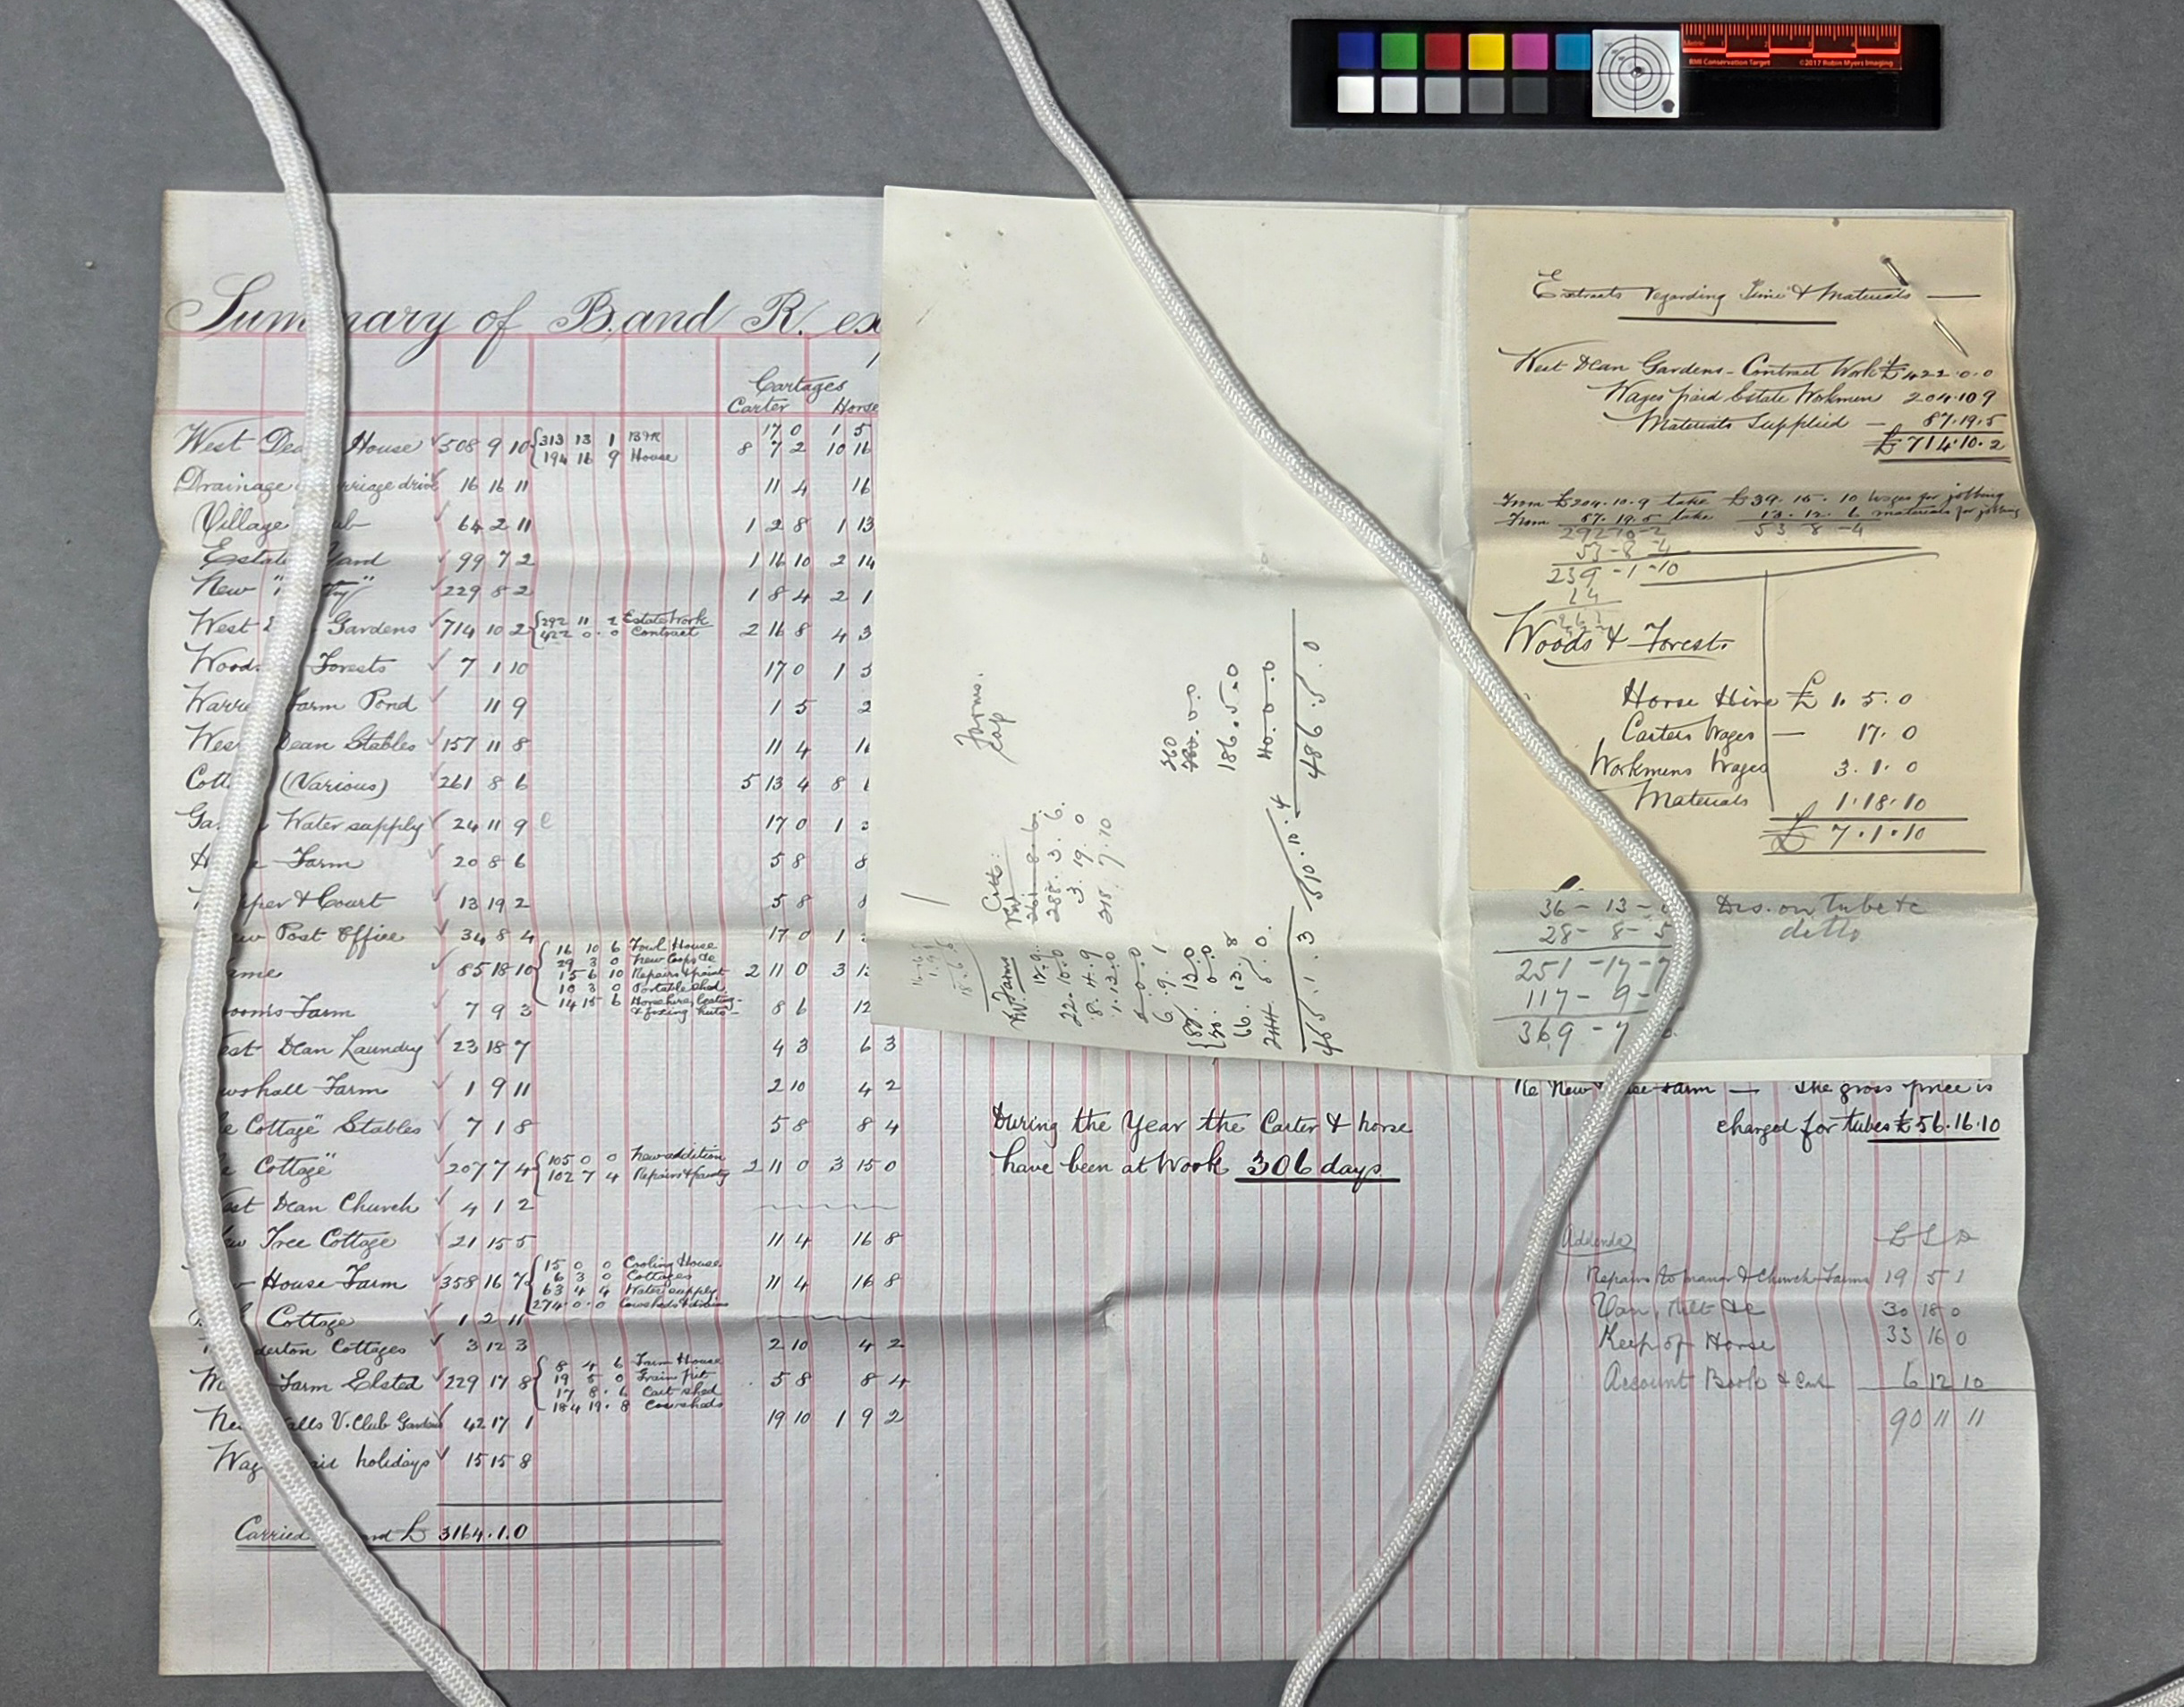 Summary of B. and R. ex
Cartages
Carter Horse
17 0 1 5
West Dea House 508 9 10 { 313 13 1 B&R 8 7 2 10 16
194 16 9 House
Drainage rriage drive 16 16 11 11 4 16
Village ub 64 2 11 1 2 8 1 13
Estate Yard 99 7 2 1 16 10 2 14
New " ty" 229 8 2 1 8 4 2 1
West Gardens 714 10 2 { 292 11 2 Estate Work 2 16 8 4 3
422 0 0 Contract
Wood Forests 7 1 10 17 0 1 5
Warre Farm Pond 11 9 1 5 2
Wes Dean Stables 157 11 8 11 4 16
Cott (Various) 261 8 6 5 13 4 8
Ga Water supply 24 11 9 17 0 1
H Farm 20 8 6 5 8 8
per & Court 13 19 2 5 8 8
ew Post Office 34 8 4 17 0 1
ame 85 18 10 { 16 10 6 Fowl House 2 11 0 3
29 3 0 New Coops &c
15 6 10 Repairs & paint
10 3 0 Portable shed
14 15 6 Horsehire, Carting
& fixing huts
oom's Farm 7 9 3 8 6 12
est Dean Laundry 23 18 7 4 3 6 3
wshall Farm 1 9 11 2 10 4 2
e Cottage" Stables 7 1 8 5 8 8 4
e Cottage" 207 7 4 { 105 0 0 New addition 2 11 0 3 15 0
102 7 4 Repairs & paintg
est Dean Church 4 1 2
ew Tree Cottage 21 15 5 11 4 16 8
w House Farm 358 16 7 { 15 0 0 Cooling House 11 4 16 8
6 3 0 Cottages
63 4 4 Water supply
274 0 0 Cowsheds & drains
Cottage 1 2 11
derton Cottages 3 12 3 2 10 4 2
Farm Elsted 229 17 8 { 8 4 6 Farm House 5 8 8 4
19 5 0 Grain pit
17 8 6 Cart shed
184 19 8 Cowsheds
Ne alls V. Club Gardens 42 17 1 19 10 1 9 2
Wag aid holidays 15 15 8
Carried nd £ 3164.1.0
Farms.
Cap
360
186.5.0
40.0.0
486.5.0
Cotts:
261.8.6
288.3.6
3.19.0
218.7.10
Farms
17.9
22.10.0
8.4.9
1.13.0
6.9.1
66.13.8
465.1.3
510.10.4
Extracts regarding Time & Materials —
West Dean Gardens - Contract Work £422.0.0
Wages paid Estate Workmen 204.10 9
Materials Supplied — 87.19.5
£714.10.2
From £204.10.9 take £39.15.10 Wages for jobbing
From 87.19.5 take 13.12.6 materials for jobbing
292-10-2 53-8-4
53-8-4
239-1-10
24
Woods & Forest.
Horse Hire £1.5.0
Carters Wages — 17.0
Workmens Wages 3.1.0
Materials 1.18.10
£7.1.10
36-13- Dis. on tube &c
28-8-5 ditto
251-17-7
117-9-
369-7
Re New ee Farm — The gross price is
charged for tubes £56.16.10
During the Year the Carter & horse
have been at Work 306 days
Addenda £ S D
Repairs to manor & Church Farms 19 5 1
Van, Tilt &c 30 18 0
Keep of Horse 33 16 0
Account Book & Cart 6 12 10
90 11 11
RMI Conservation Target ©2017 Robin Myers Imaging